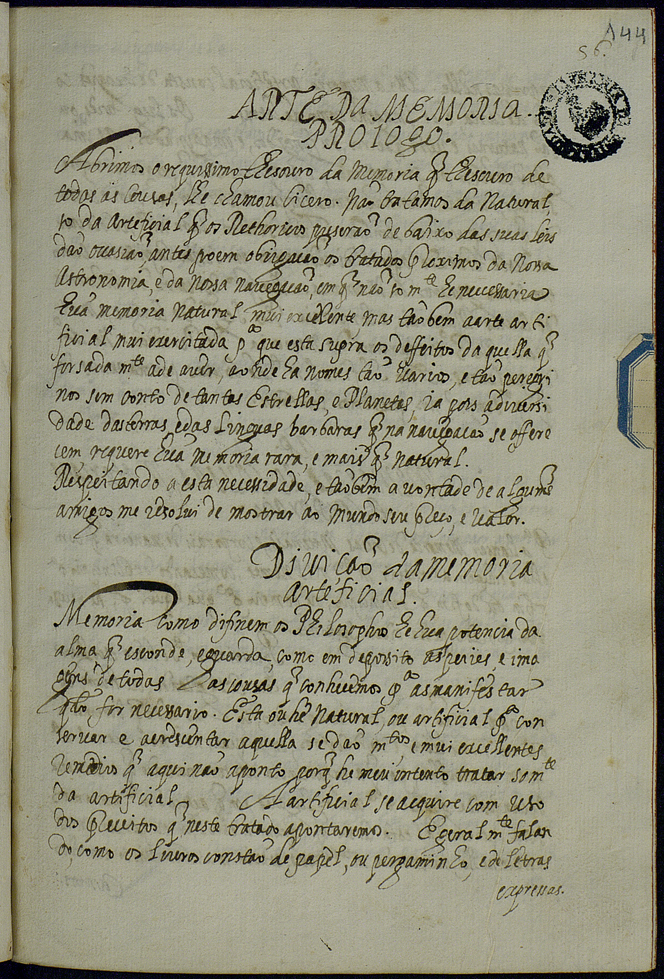 144
56.
ARTE DA MEMORIA.
PROLOGO.
Abrimos o requissimo thesouro da Memoria q̃ thesouro de
todas as Cousas, lhe chamou Cicero. Não tratamos da Natural,
so da Arteficial q̃ os Rethoricos puserão de baixo das suas leis
dão ocasião, antes poem obrigação os tratados proximos da Nossa
Astronomia, e da Nossa navegação, em q̃ não so m.te he necessaria
hũa memoria Natural mui excellente mas tão bem a arte arti
ficial mui exercitada p.a que esta supra os deffeitos da quella q̃
forsada m.te a de aver, ao nde ha nomes tão varios, e tão peregri
nos sem conto de tantas Estrellas, e Planetas, ja pois a diversi
dade das terras, e das Linguas barbaras q̃ na navegação se offere
cem requere hũa memoria rara, e mais q̃ natural.
Respeitando a esta necessidade, e tão bem a vontade de alguns
amigos me resolvi de mostrar ao Mundo seu preço, e valor.
Divição da memoria
arteficial.
Memoria como difinem os Philosophos he hũa potencia da
alma q̃ esconde, e guarda, como em deposito as species e ima
gens de todas as cousas q̃ conhecemos p.a as manifestar
q̃do for necessario. Esta ou he Natural, ou artificial p.a con
servar e acrescentar aquella se dão m.tos e mui excellentes
remedios q̃ aqui não aponto porq̃ he meu intento tratar som.te
da artificial A artificial se acquire com uso
dos preceitos q̃ neste tratado apontaremos. E geral m.te falan
do como os livros constão de papel, ou pergaminho, e de letras
expressas.